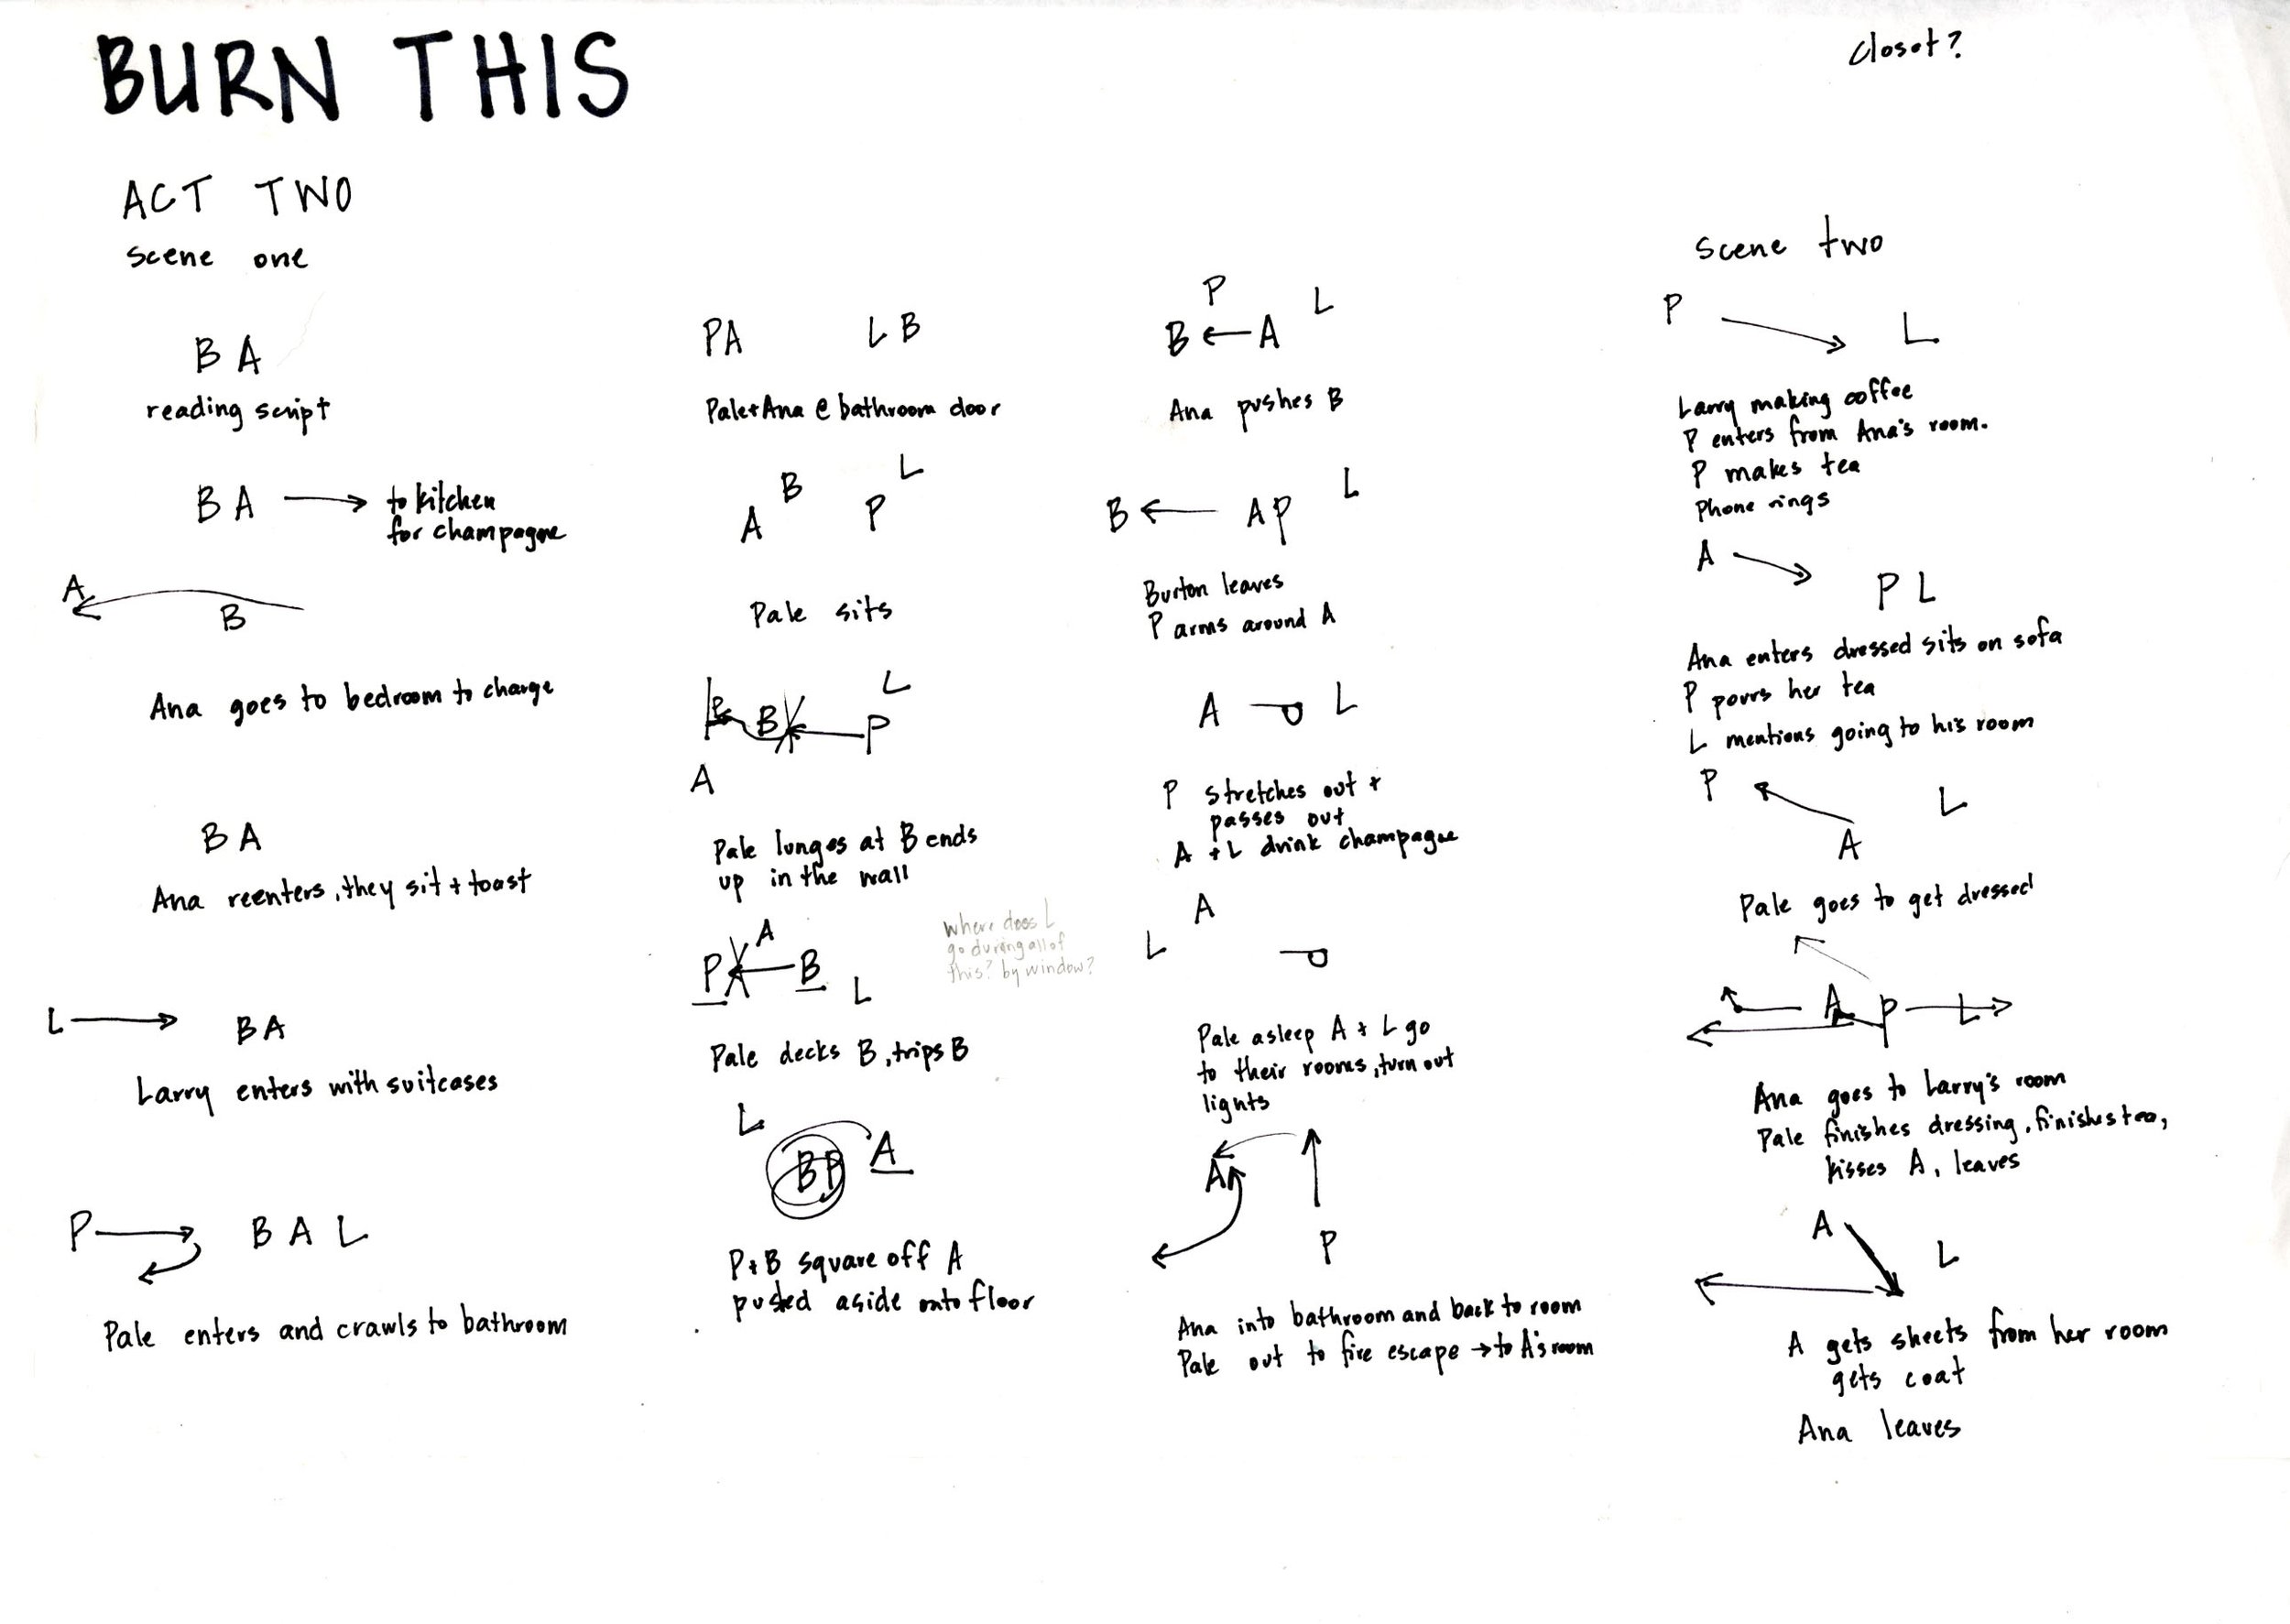 BURN THIS
closet?
ACT TWO
scene one
B A
reading script
B A
to kitchen
for champagne
A
B
Ana goes to bedroom to change
B A
Ana reenters, they sit + toast
L
B A
Larry enters with suitcases
P
B A L
Pale enters and crawls to bathroom
PA L B
Pale+Ana @ bathroom door
A B P L
Pale sits
B P L
A
Pale lunges at B ends
up in the wall
P A B L
where does L
go during all of
this? by window?
Pale decks B, trips B
L
BP A
P+B square off A
pushed aside onto floor
P L
B A
Ana pushes B
B A P L
Burton leaves
P arms around A
A P L
P stretches out +
passes out
A + L drink champagne
A
L P
Pale asleep A + L go
to their rooms, turn out
lights
A
P
Ana into bathroom and back to room
Pale out to fire escape → to A's room
scene two
P
L
Larry making coffee
P enters from Ana's room.
P makes tea
Phone rings
A
P L
Ana enters dressed sits on sofa
P pours her tea
L mentions going to his room
P L
A
Pale goes to get dressed
A P L
Ana goes to Larry's room
Pale finishes dressing, finishes tea,
kisses A, leaves
A
L
A gets sheets from her room
gets coat
Ana leaves